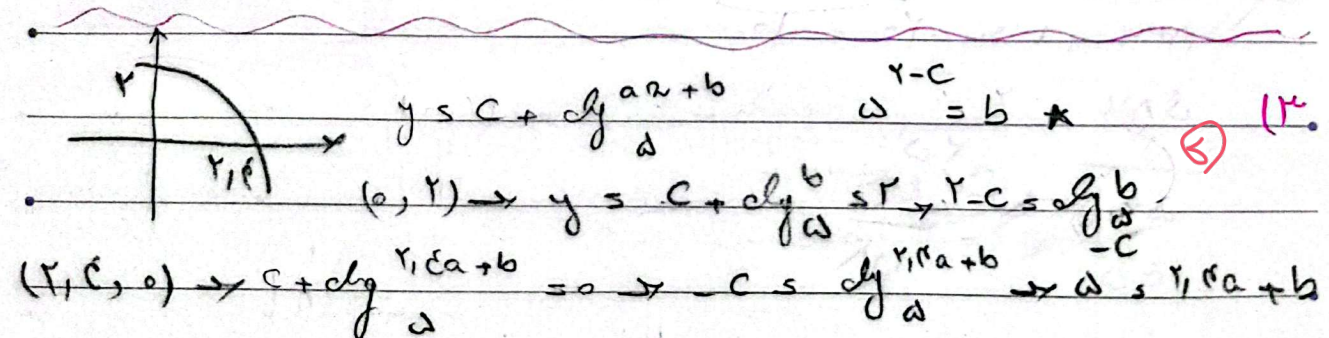 ۳)
۲
۲,۴
y = C + log_۵^{ax + b}   ۵^{۲-C} = b *
۵
(۰, ۲) → y = C + log_۵^b = ۲ → ۲-C = log_۵^b
(۲,۴, ۰) → C + log_۵^{۲,۴a + b} = ۰ → -C = log_۵^{۲,۴a + b} → ۵^{-C} = ۲,۴a + b